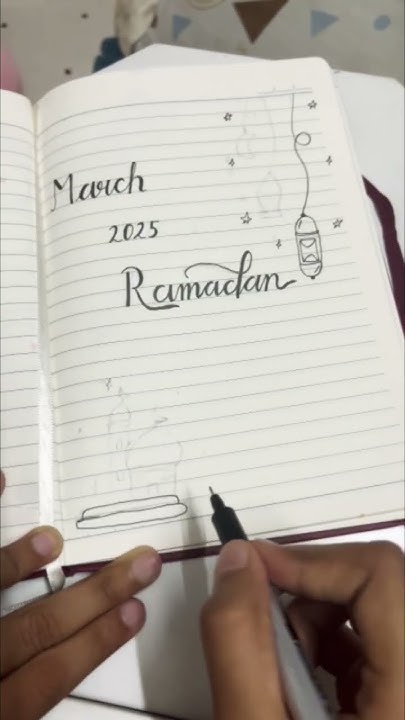 March
2025
Ramadan